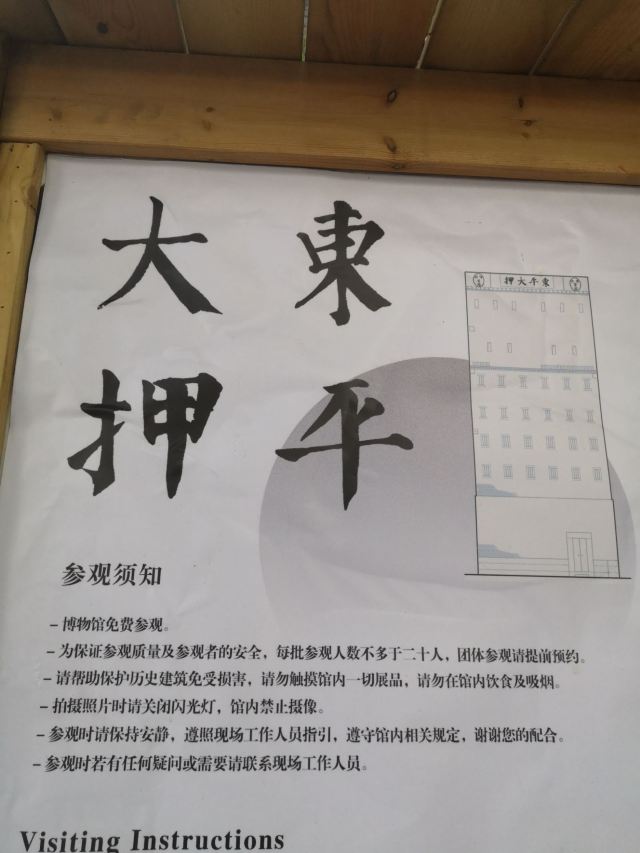 東平
大押
東平大押
参观须知
– 博物馆免费参观。
– 为保证参观质量及参观者的安全，每批参观人数不多于二十人，团体参观请提前预约。
– 请帮助保护历史建筑免受损害，请勿触摸馆内一切展品，请勿在馆内饮食及吸烟。
– 拍摄照片时请关闭闪光灯，馆内禁止摄像。
– 参观时请保持安静，遵照现场工作人员指引，遵守馆内相关规定，谢谢您的配合。
– 参观时若有任何疑问或需要请联系现场工作人员。
Visiting Instructions